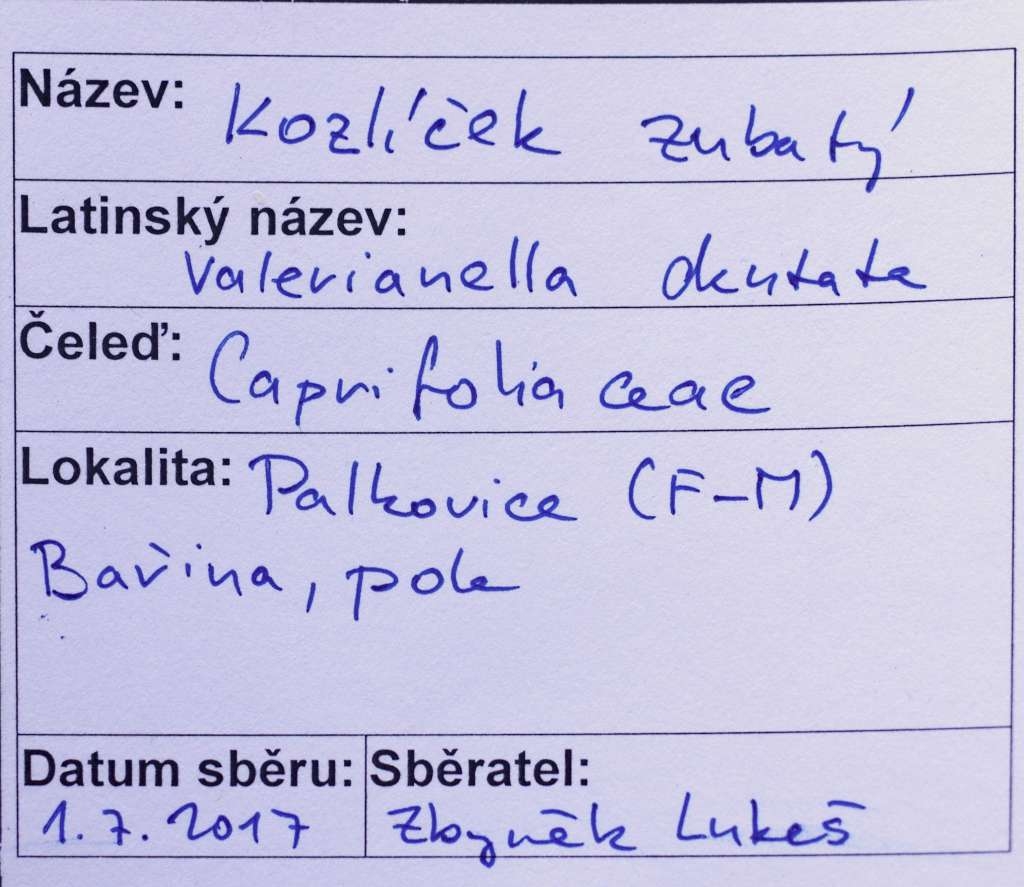 Název: Kozlíček zubatý
Latinský název:
Valerianella dentata
Čeleď: Caprifoliaceae
Lokalita: Palkovice (F-M)
Bařina, pole
Datum sběru: Sběratel:
1.7.2017 Zbyněk Lukeš